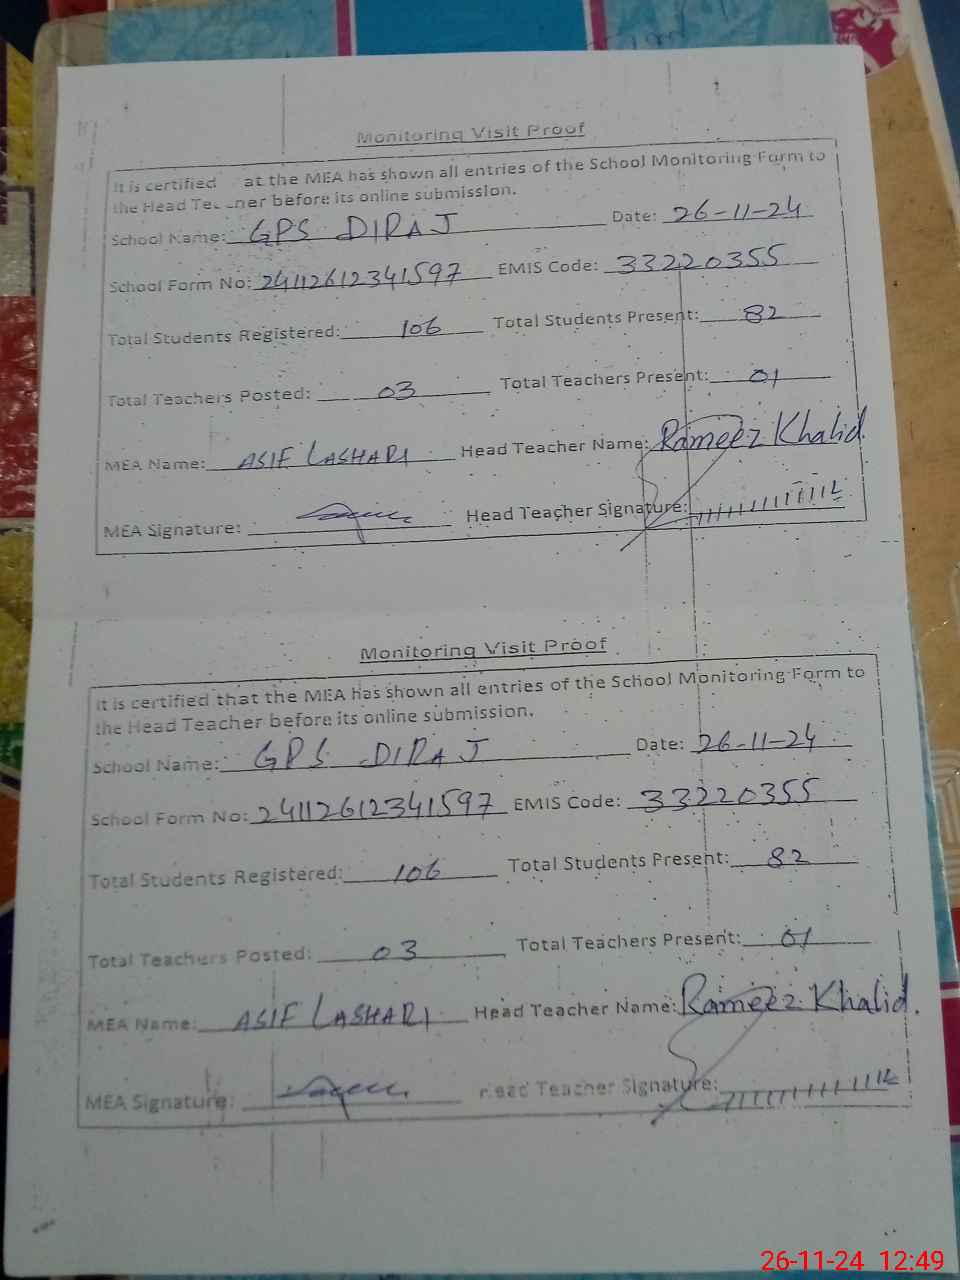 Monitoring Visit Proof
It is certified at the MEA has shown all entries of the School Monitoring Form to
the Head Teacher before its online submission.
School Name: GPS DIRAJ Date: 26-11-24
School Form No: 24112612341597 EMIS Code: 33220355
Total Students Registered: 106 Total Students Present: 82
Total Teachers Posted: 03 Total Teachers Present: 01
MEA Name: ASIF LASHARI Head Teacher Name: Rameez Khalid.
MEA Signature: Head Teacher Signature:
Monitoring Visit Proof
It is certified that the MEA has shown all entries of the School Monitoring Form to
the Head Teacher before its online submission.
School Name: GPS DIRAJ Date: 26-11-24
School Form No: 24112612341597 EMIS Code: 33220355
Total Students Registered: 106 Total Students Present: 82
Total Teachers Posted: 03 Total Teachers Present: 01
MEA Name: ASIF LASHARI Head Teacher Name: Rameez Khalid.
MEA Signature: Head Teacher Signature:
26-11-24 12:49